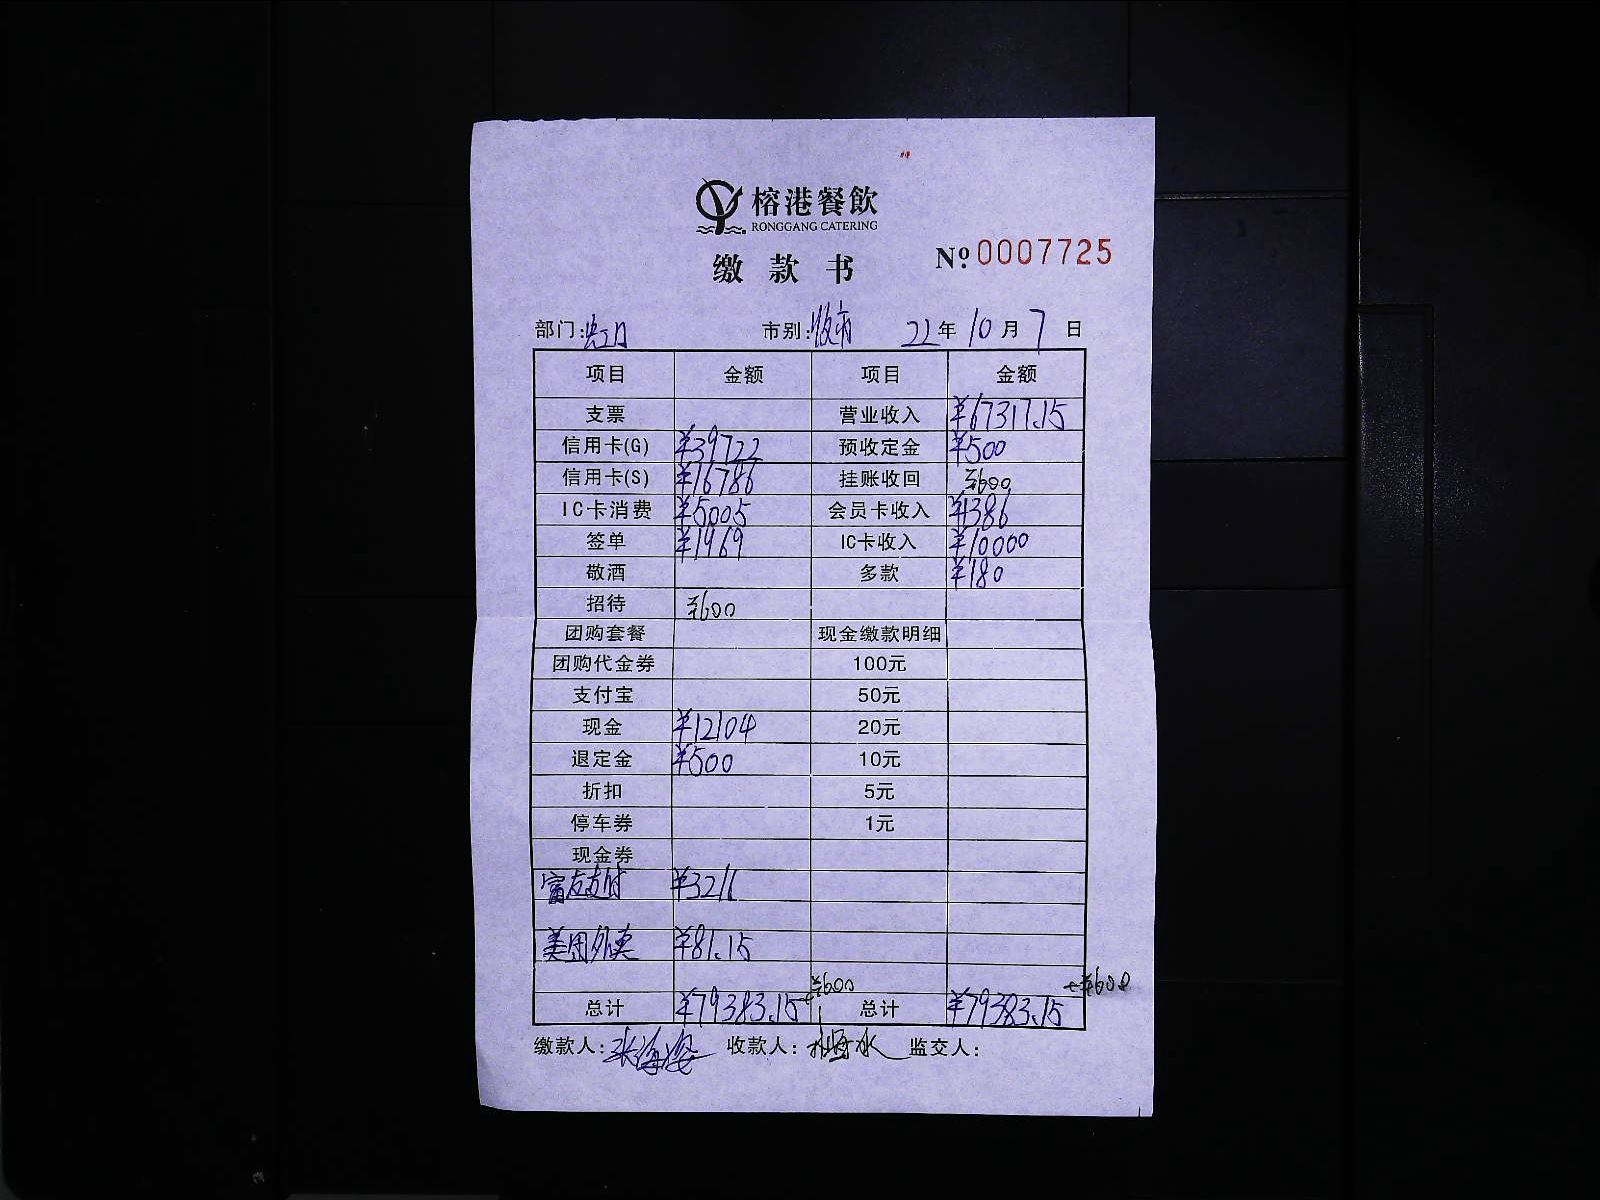 榕港餐飲
RONGGANG CATERING
缴款书 Nº 0007725
部门:虹口 市别:收市 22年10月7日
项目 金额 项目 金额
支票 营业收入 ¥67317.15
信用卡(G) ¥39722 预收定金 ¥500
信用卡(S) ¥16786 挂账收回 ¥600
IC卡消费 ¥5005 会员卡收入 ¥1386
签单 ¥1969 IC卡收入 ¥10000
敬酒 多款 ¥180
招待 ¥600
团购套餐 现金缴款明细
团购代金券 100元
支付宝 50元
现金 ¥12104 20元
退定金 ¥500 10元
折扣 5元
停车券 1元
现金券
富友支付 ¥3216
美团外卖 ¥81.15
总计 ¥79383.15+¥600 总计 ¥79383.15+¥600
缴款人:张海 收款人: 监交人: